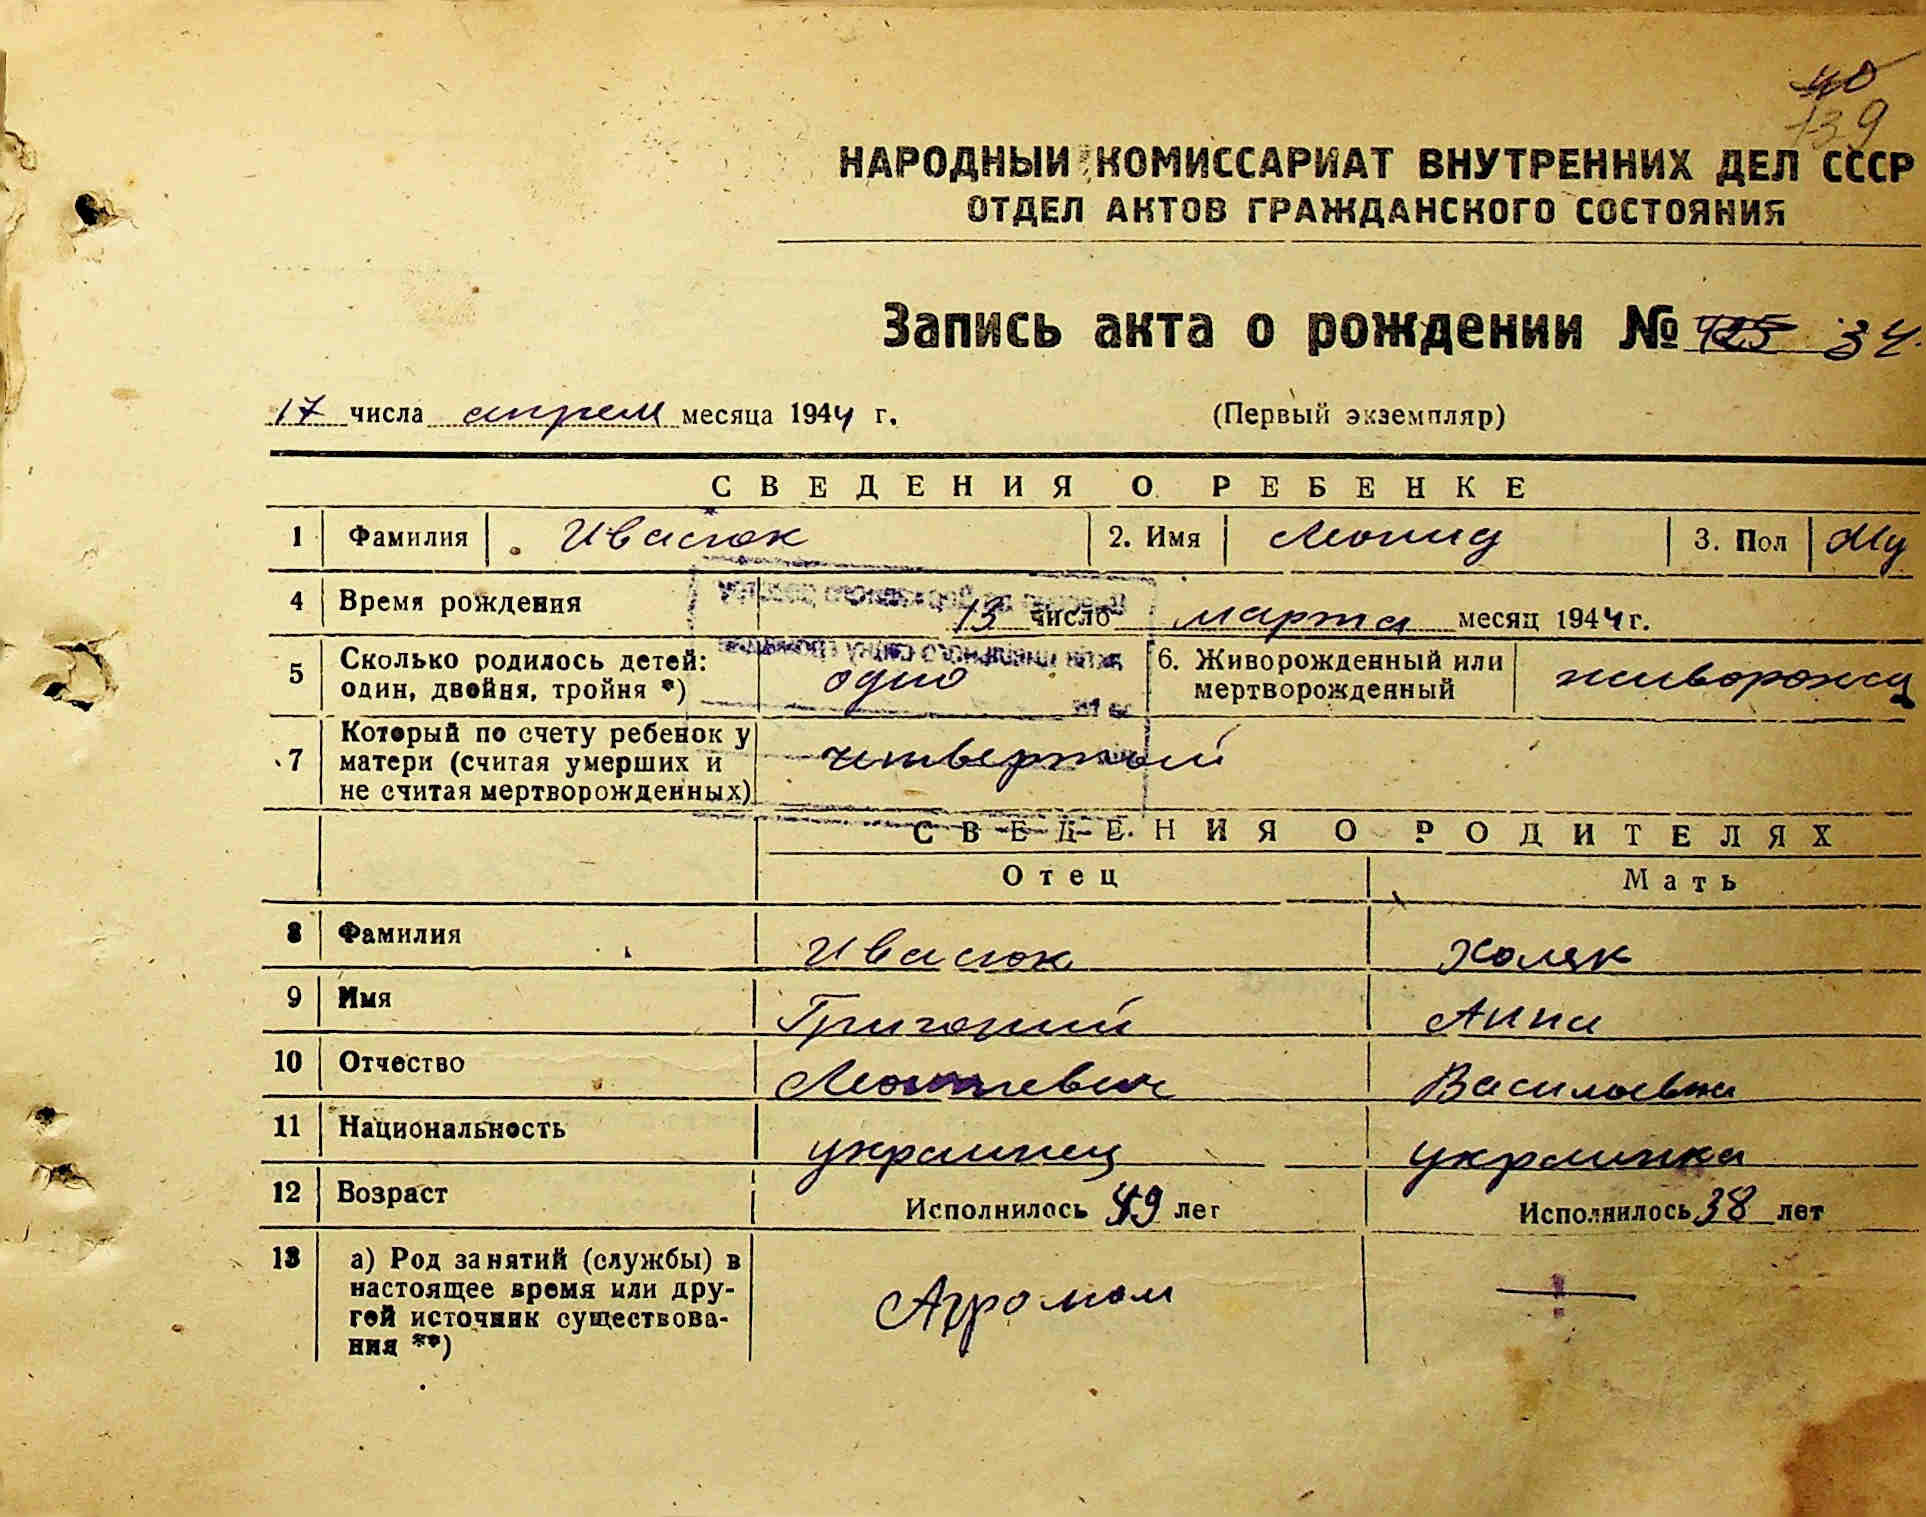 40
139
НАРОДНЫЙ КОМИССАРИАТ ВНУТРЕННИХ ДЕЛ СССР
ОТДЕЛ АКТОВ ГРАЖДАНСКОГО СОСТОЯНИЯ
Запись акта о рождении № 34
17 числа апреля месяца 1944 г. (Первый экземпляр)
СВЕДЕНИЯ О РЕБЕНКЕ
1 Фамилия Ивасюк 2. Имя Леонид 3. Пол Му
4 Время рождения 13 число марта месяц 1944 г.
5 Сколько родилось детей: один, двойня, тройня *) одно 6. Живорожденный или мертворожденный живорожд
7 Который по счету ребенок у матери (считая умерших и не считая мертворожденных) четвертый
СВЕДЕНИЯ О РОДИТЕЛЯХ
Отец Мать
8 Фамилия Ивасюк Холяк
9 Имя Григорий Анна
10 Отчество Василевна
11 Национальность украинец украинка
12 Возраст Исполнилось 49 лет Исполнилось 38 лет
13 а) Род занятий (службы) в
настоящее время или дру-
гой источник существова-
ния **) Агроном —